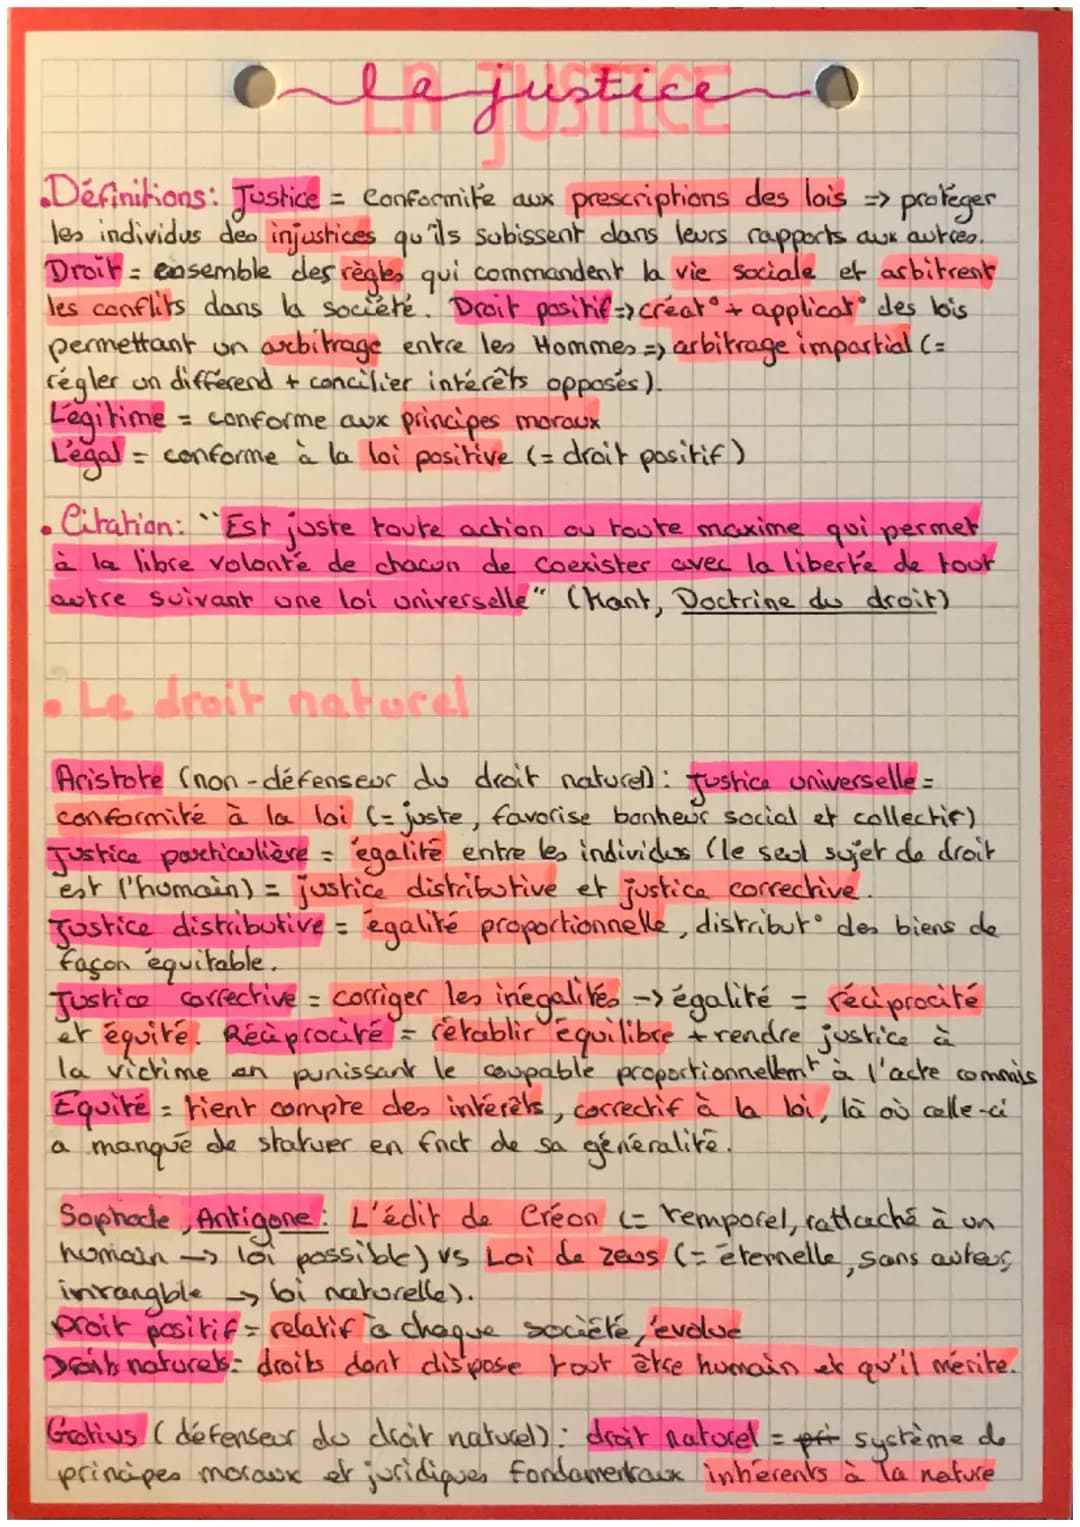 la justice
LA JUSTICE
• Définitions: Justice = Conformité aux prescriptions des lois => protéger
les individus des injustices qu'ils subissent dans leurs rapports aux autres.
Droit = ensemble des règles qui commandent la vie sociale et arbitrent
les conflits dans la société. Droit positif => créat° + applicat° des lois
permettant un arbitrage entre les Hommes => arbitrage impartial (=
régler un différend + concilier intérêts opposés).
Légitime = conforme aux principes moraux
Légal = conforme à la loi positive (= droit positif)
• Citation: "Est juste toute action ou toute maxime qui permet
à la libre volonté de chacun de coexister avec la liberté de tout
autre suivant une loi universelle" (Kant, Doctrine du droit)
• Le droit naturel
Aristote (non-défenseur du droit naturel): Justice universelle =
conformité à la loi (= juste, favorise bonheur social et collectif)
Justice particulière = égalité entre les individus (le seul sujet de droit
est l'humain) = justice distributive et justice corrective.
Justice distributive = égalité proportionnelle, distribut° des biens de
façon équitable.
Justice corrective = corriger les inégalités -> égalité = réciprocité
et équité. Réciprocité = rétablir équilibre + rendre justice à
la victime en punissant le coupable proportionnellemt à l'acte commis
Equité = tient compte des intérêts, correctif à la loi, là où celle-ci
a manqué de statuer en fnct de sa généralité.
Sophocle, Antigone: L'édit de Créon (= temporel, rattaché à un
humain -> loi possible) vs Loi de Zeus (= éternelle, sans auteur,
intangible -> loi naturelle).
Droit positif = relatif à chaque société, évolue
Droits naturels = droits dont dispose tout être humain et qu'il mérite.
Grotius (défenseur du droit naturel): droit naturel = pri système de
principes moraux et juridiques fondamentaux inhérents à la nature